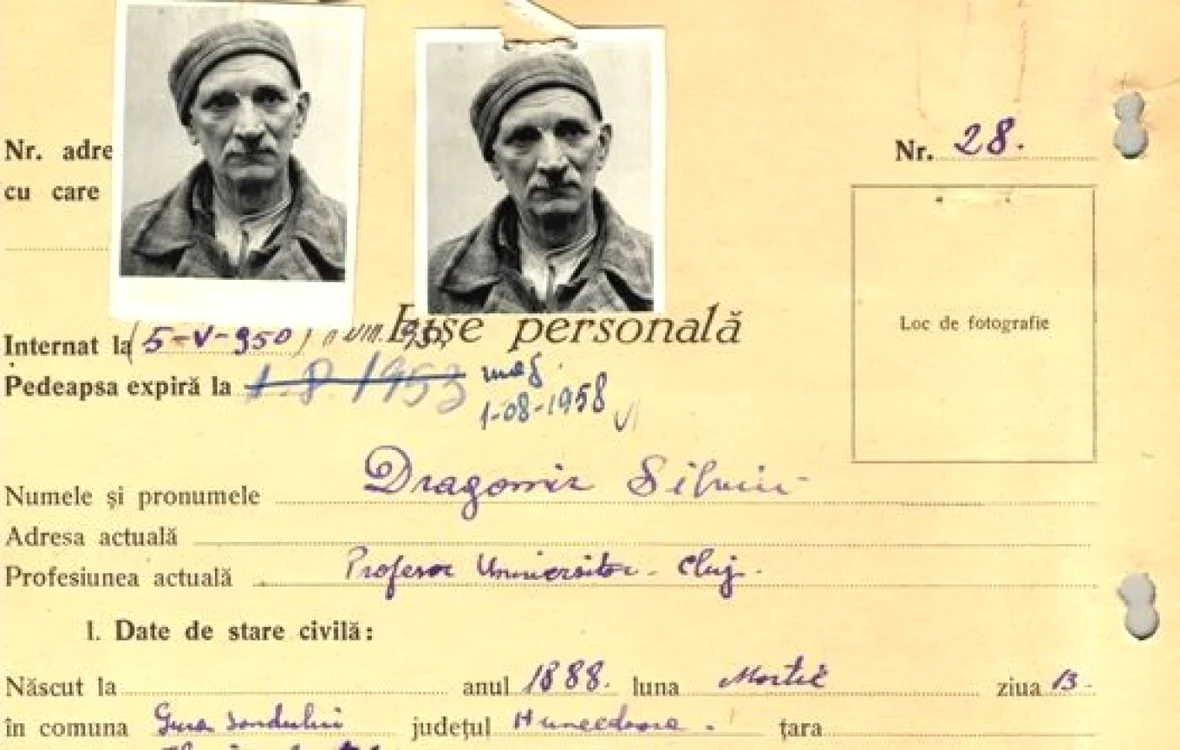 Nr. adre
Nr. 28.
cu care
Loc de fotografie
Fișe personală
Internat la (5-V-950)
Pedeapsa expiră la 1.8.1953
1-08-1958
Numele și pronumele Dragomir Silviu
Adresa actuală
Profesiunea actuală Profesor Universitar - Cluj.
I. Date de stare civilă:
Născut la anul 1888. luna Martie ziua 13
în comuna Gura Sondului județul Hunedoara. țara